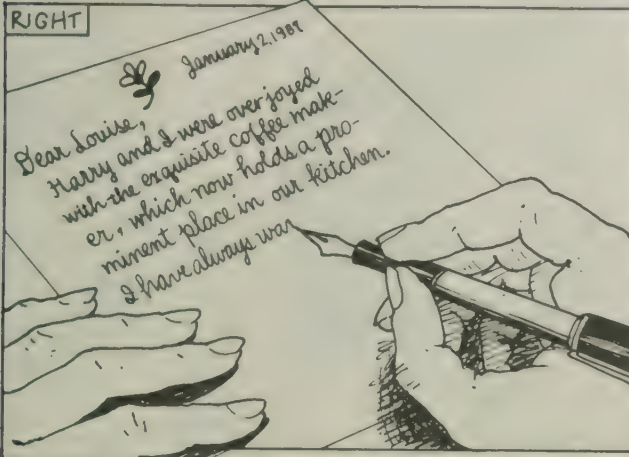 RIGHT
January 2, 1989
Dear Louise,
Harry and I were overjoyed
with the exquisite coffee mak-
er, which now holds a pro-
minent place in our kitchen.
I have always wan